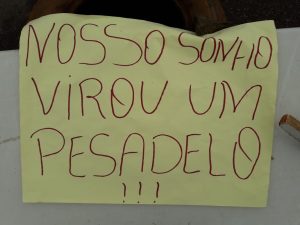 NOSSO SONHO
VIROU UM
PESADELO
!!!